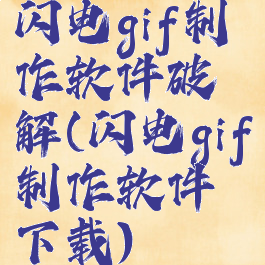 闪电gif制
作软件破
解(闪电gif
制作软件
下载)